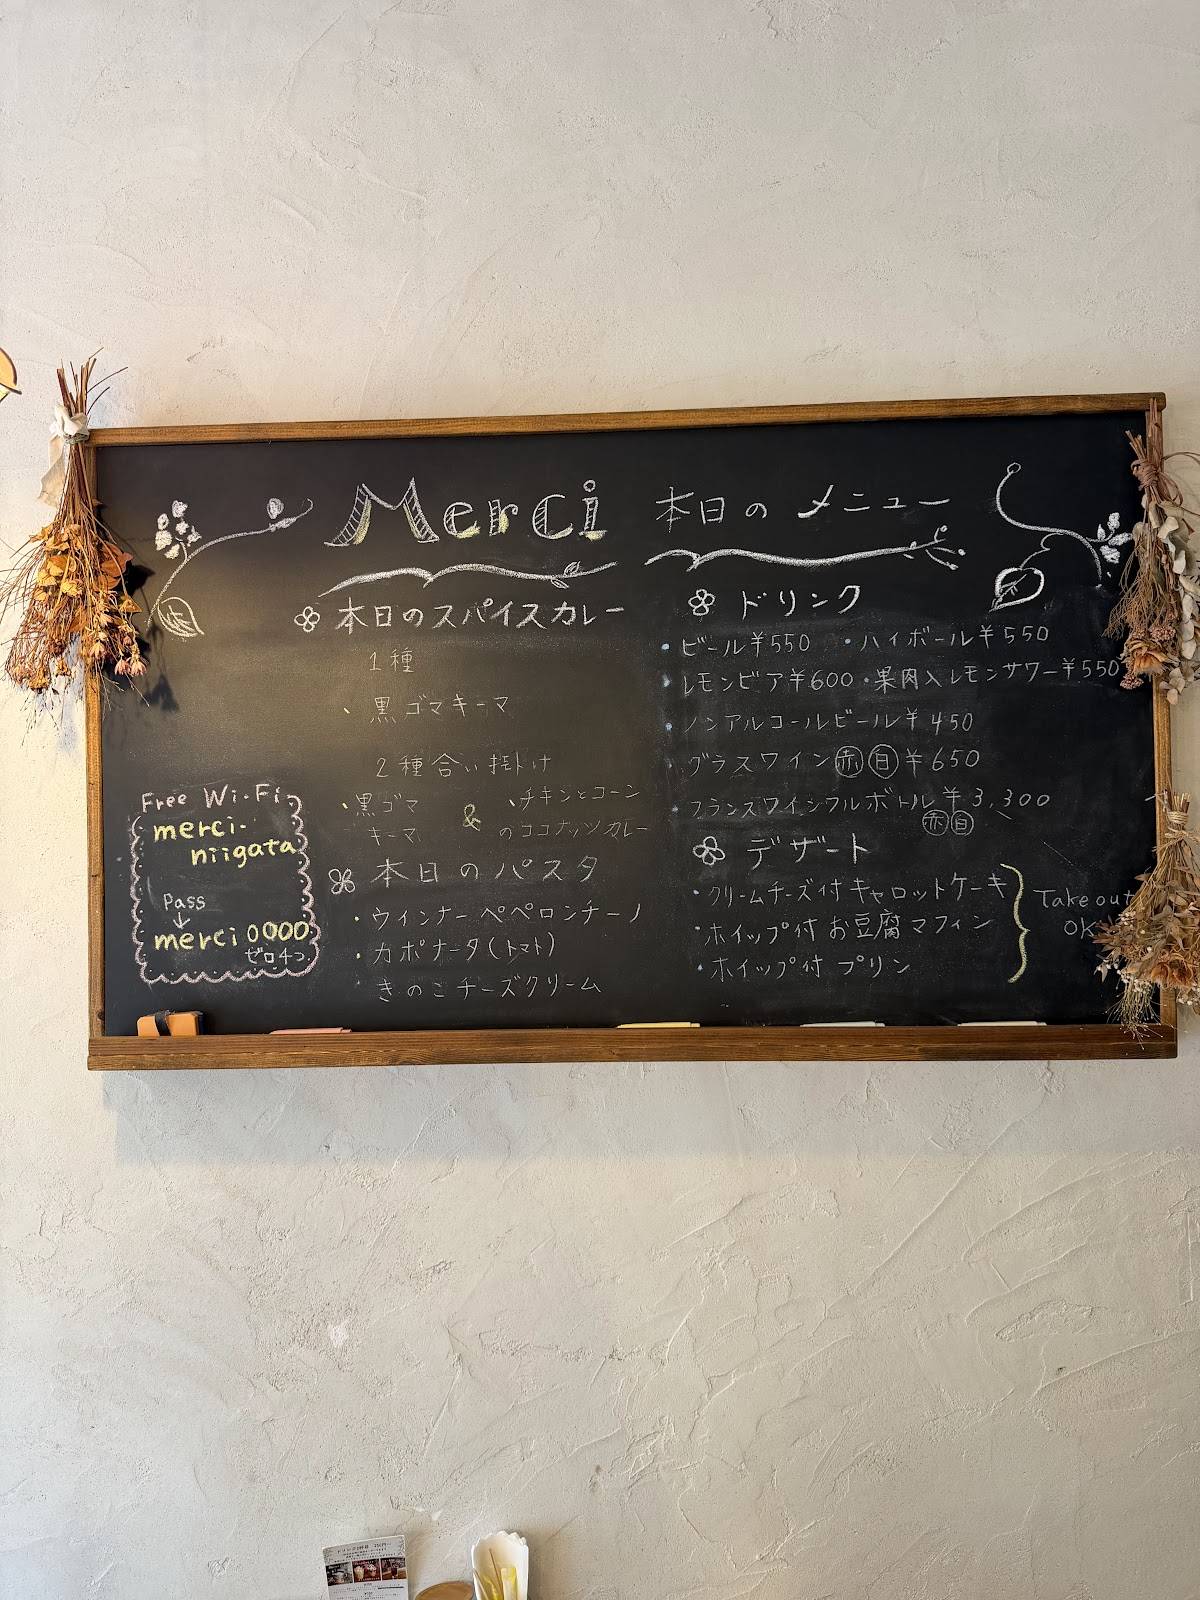 Merci 本日の メニュー
本日のスパイスカレー
1種
、黒ゴマキーマ
2種合い掛け
、黒ゴマ
キーマ
&
、チキンとコーン
のココナッツカレー
本日のパスタ
・ウインナーペペロンチーノ
・カポナータ(トマト)
・きのこチーズクリーム
Free Wi-Fi
merci-
niigata
Pass
↓
merci0000
ゼロ4つ
ドリンク
・ビール¥550 ・ハイボール¥550
・レモンビア¥600・果肉入レモンサワー¥550
・ノンアルコールビール¥450
・グラスワイン赤白¥650
・フランスワインフルボトル¥3,300
赤白
デザート
・クリームチーズ付キャロットケーキ
・ホイップ付お豆腐マフィン
・ホイップ付プリン
Take out
OK